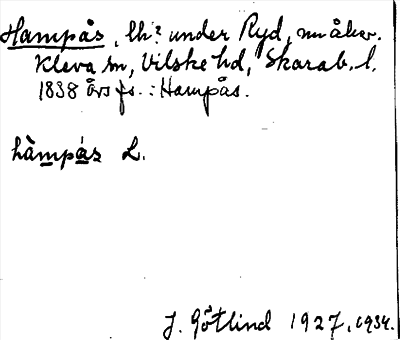 Hampås, lh? under Ryd, nu åker.
Kleva sn, Vilske hd, Skarab. l.
1838 års fs.: Hampås.
hàmpás L.
J. Götlind 1927, 1934.